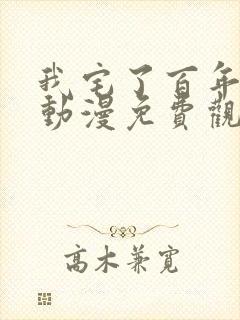 我宅了百年
動漫免費觀
高木兼寬